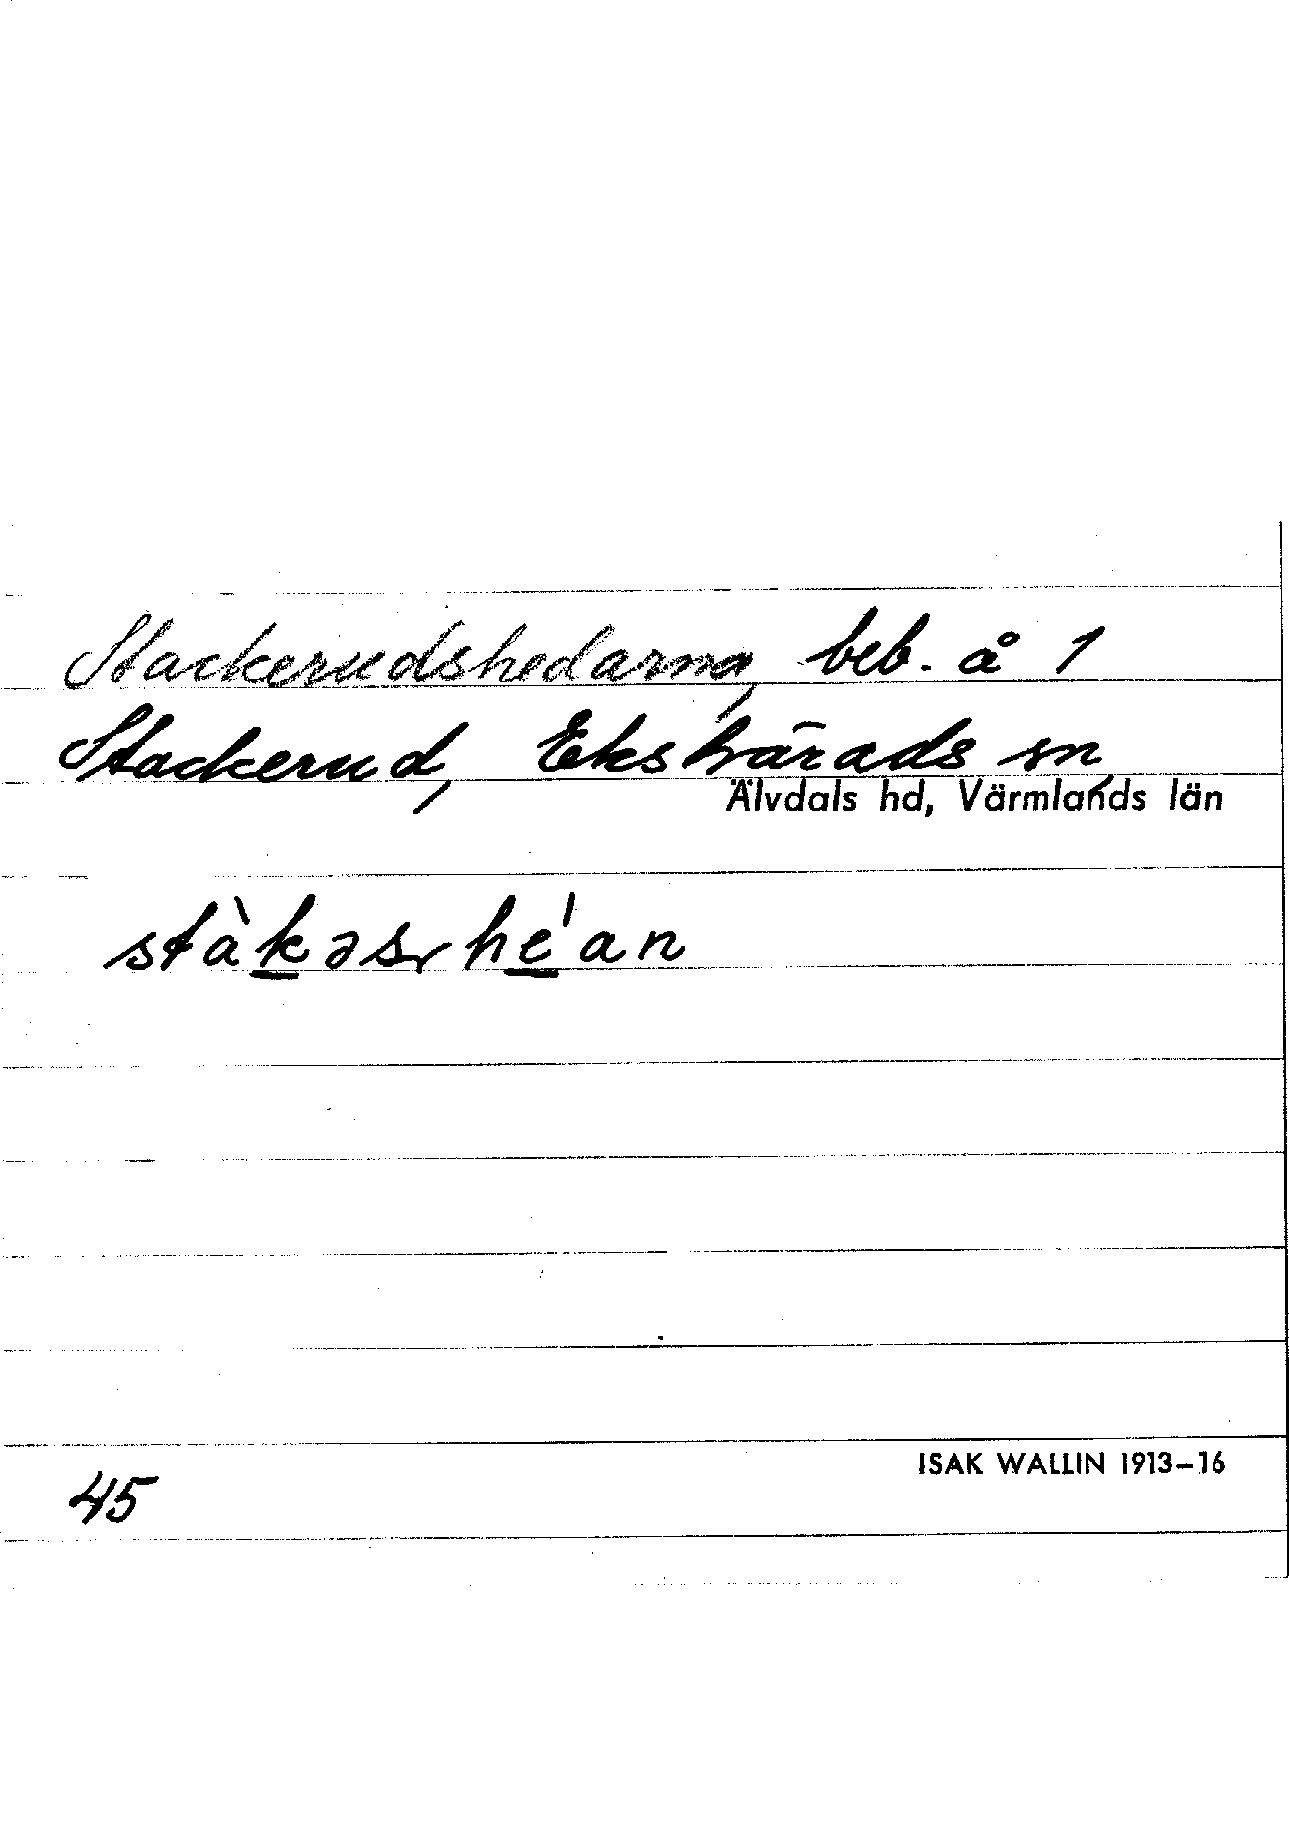 Stackerudshedarna, beb. å 1
Stackerud, Ekshärads sn,
Älvdals hd, Värmlands län
stàkəsr he'an
45
ISAK WALLIN 1913–16